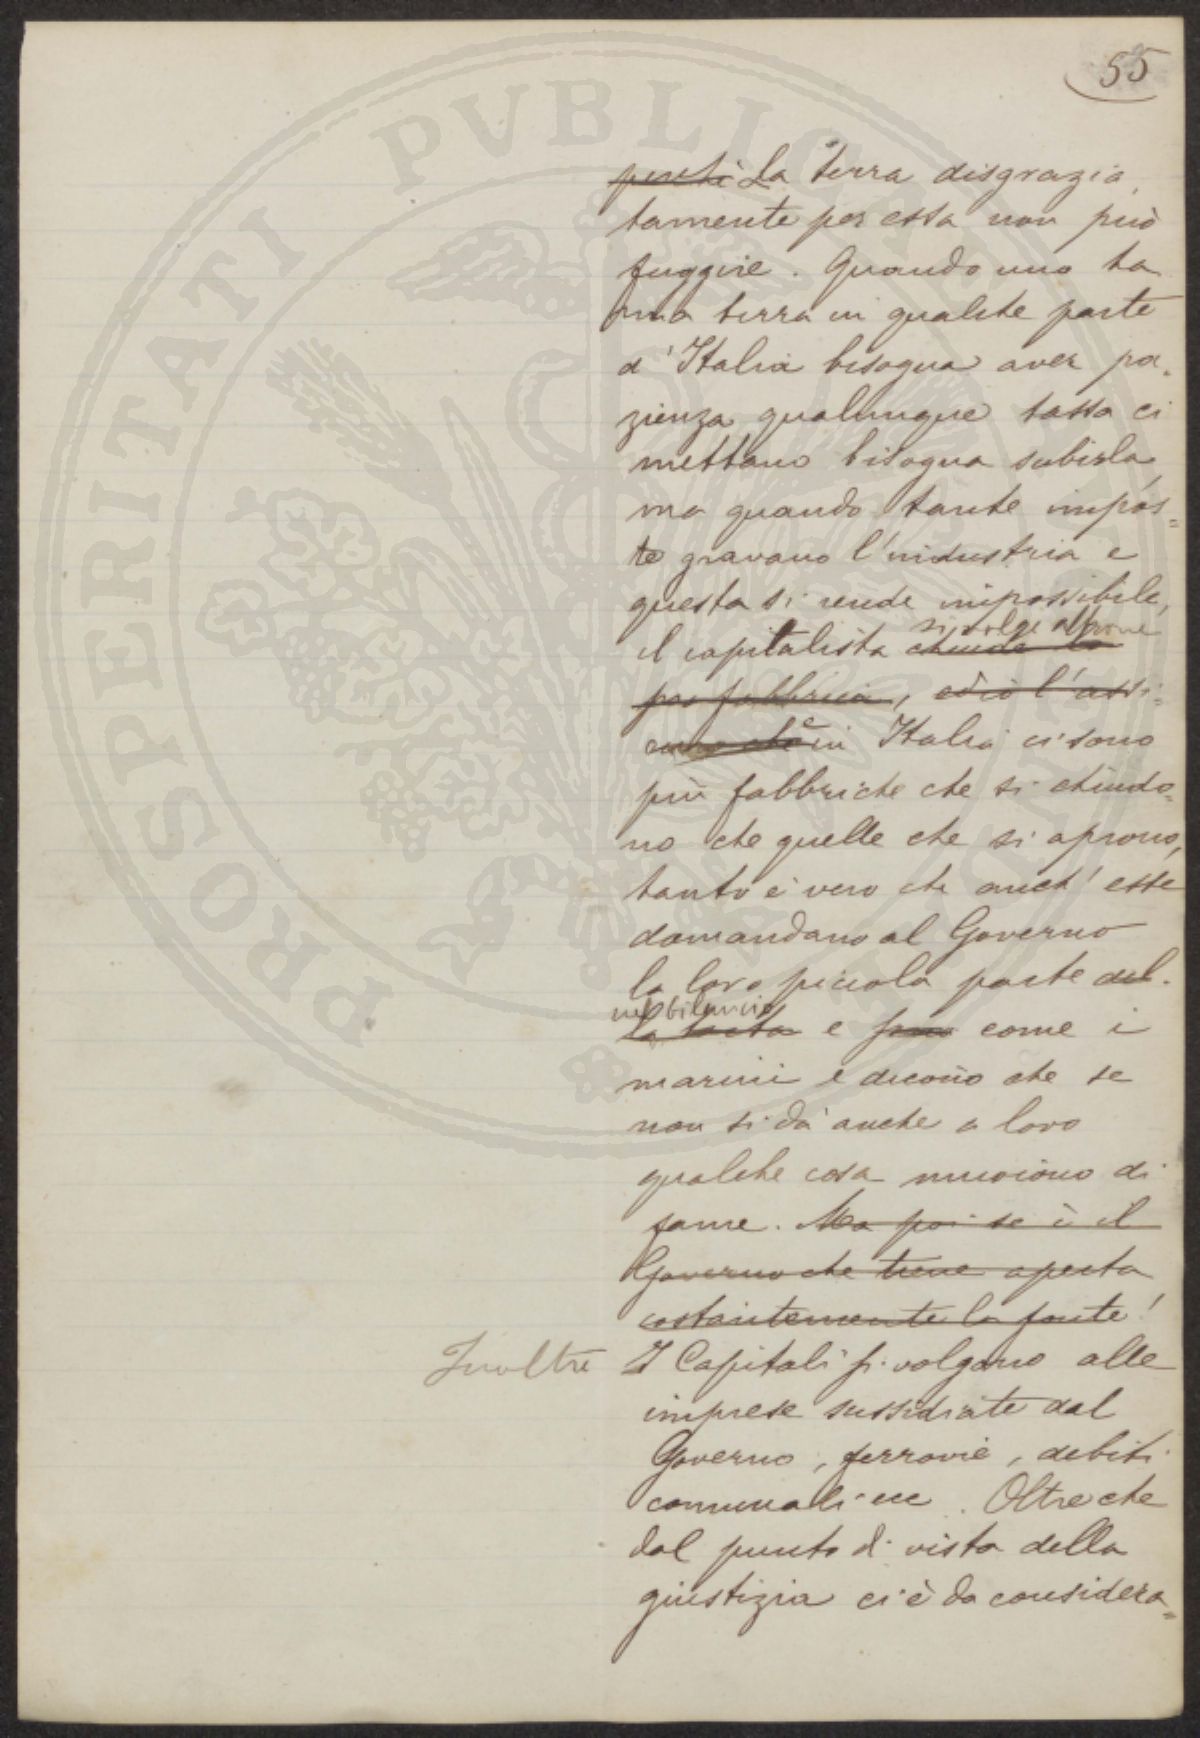 55
~~perchè~~ La terra disgrazia,
tamente per essa non può
fuggire. Quando uno ha
una terra in qualche parte
d'Italia bisogna aver pa-
zienza qualunque tassa ci
mettano bisogna subirla
ma quando tante impos=
te gravano l'industria e
questa si rende impossibile,
si volge altrove
il capitalista ~~chiude la~~
~~sua fabbrica, ed io l'assi-~~
~~curo che~~ e in Italia ci sono
più fabbriche che si chiudo=
no che quelle che si aprono,
tanto è vero che anch'esse
domandano al Governo
la loro piccola parte del-
nel bilancio
~~la torta~~ e ~~fan~~ come i
marini e dicono che se
non si dà anche a loro
qualche cosa muoiono di
fame. ~~Ma poi se è il~~
~~Governo che tiene aperta~~
~~costantemente la fonte!~~
Inoltre I Capitali si volgono alle
imprese sussidiate dal
Governo, ferrovie, debiti
comunali ecc. Oltreche
dal punto di vista della
giustizia ci è da considera=
PROSPERITATI PVBLICAE